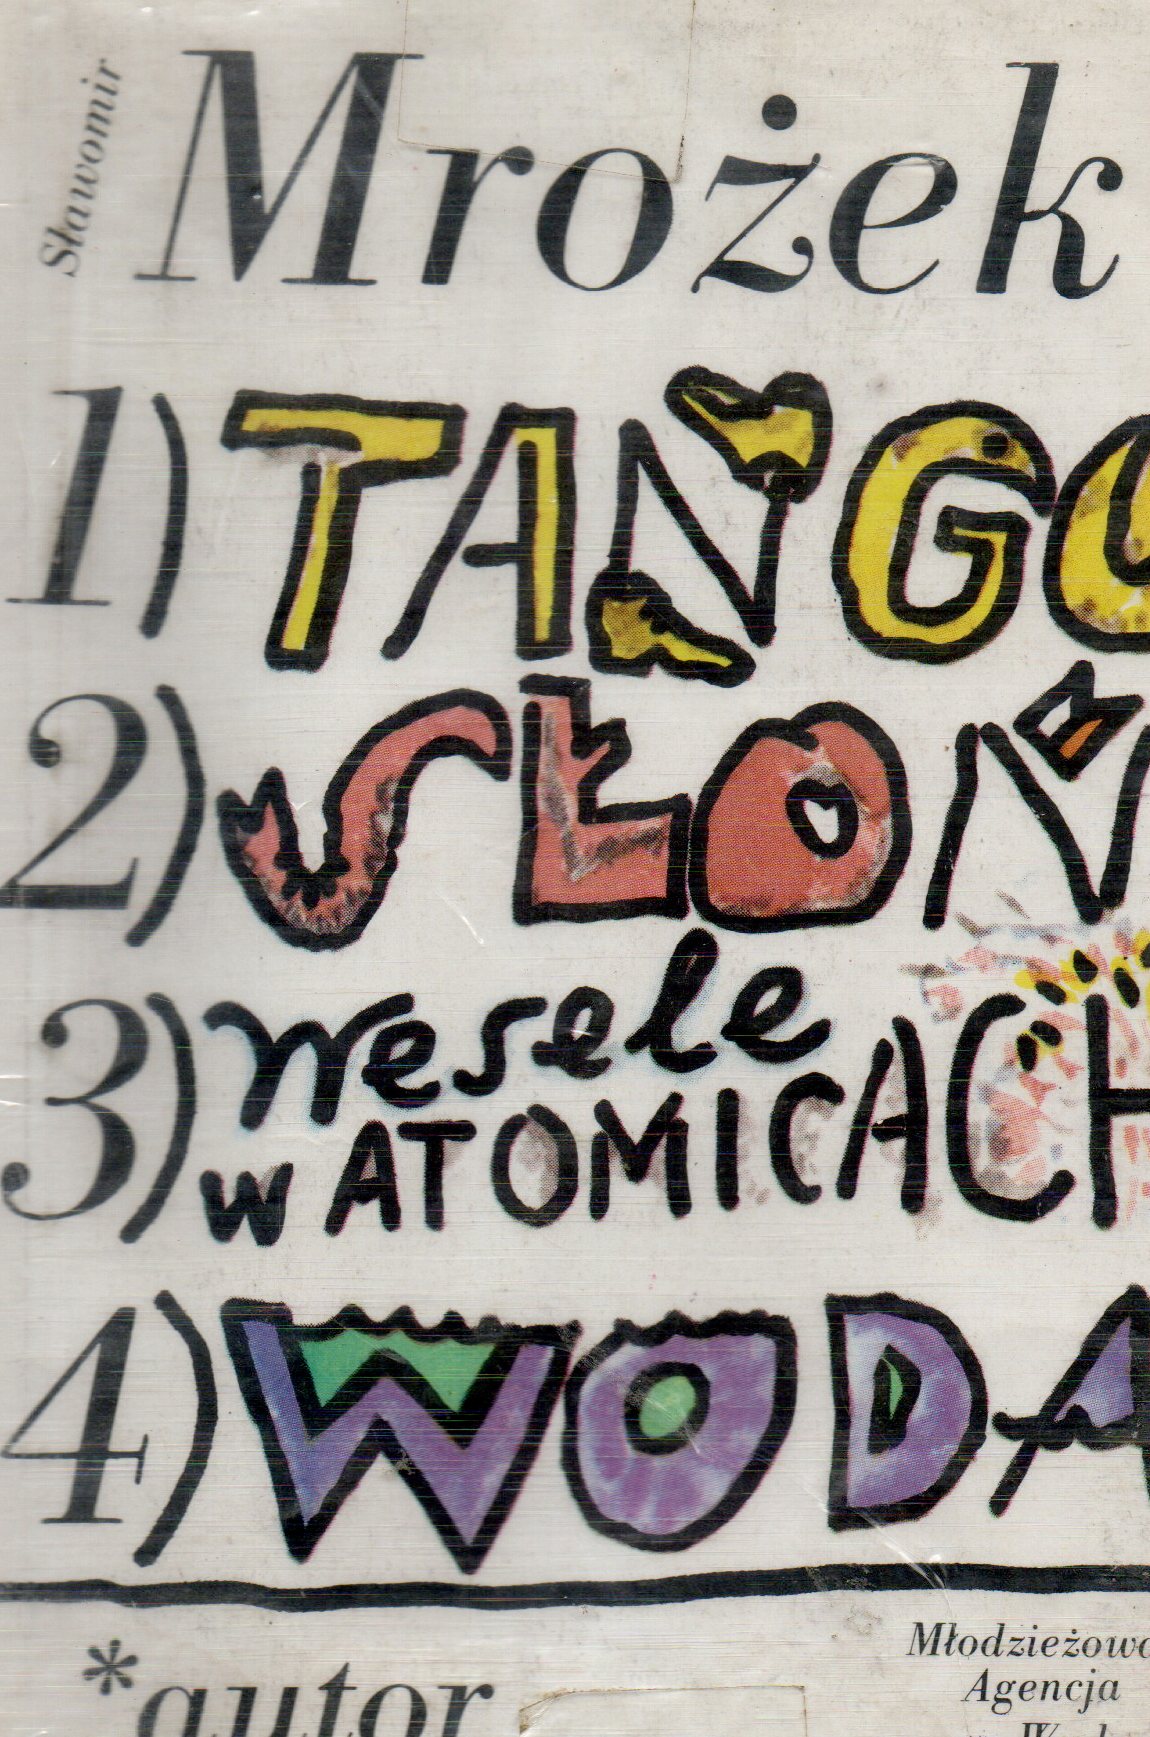 Sławomir
Mrożek
1) TANGO
2) SŁOŃ
3) wesele
w ATOMICACH
4) WODA
*autor
Młodzieżowa
Agencja